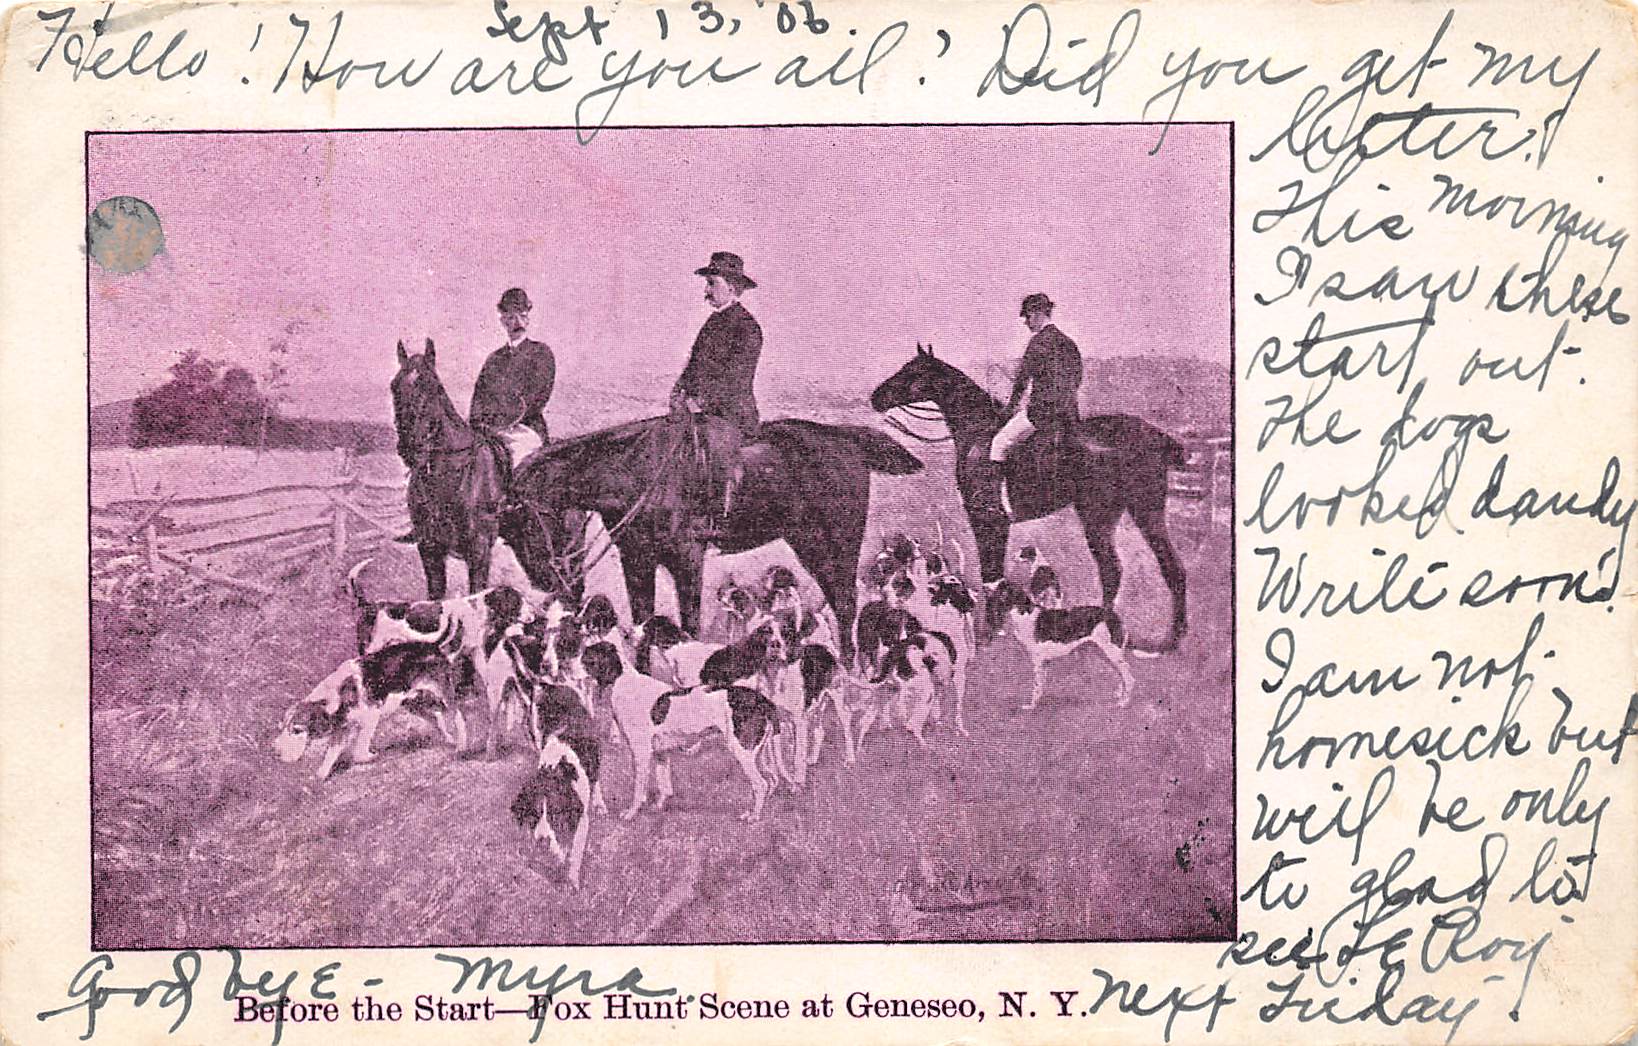 Sept 13, '06.
Hello! How are you all? Did you get my
letter?
This morning
I saw these
start out.
The dogs
looked dandy
Write soon!
I am not
homesick but
will be only
to glad to
see Le Roy
next Friday!
Good bye - Myra.
Before the Start—Fox Hunt Scene at Geneseo, N. Y.